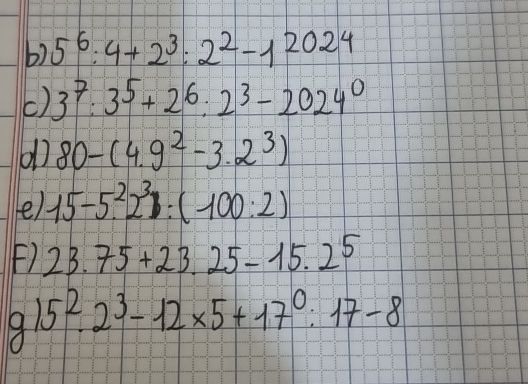 b) 5⁶ : 4 + 2³ : 2² - 1²⁰²⁴
c) 3⁷ : 3⁵ + 2⁶ : 2³ - 2024⁰
d) 80 - (4.9² - 3.2³)
e) 15 - 5².2³ : (100 : 2)
F) 23.75 + 23.25 - 15.2⁵
g) 5².2³ - 12 × 5 + 17⁰ : 17 - 8